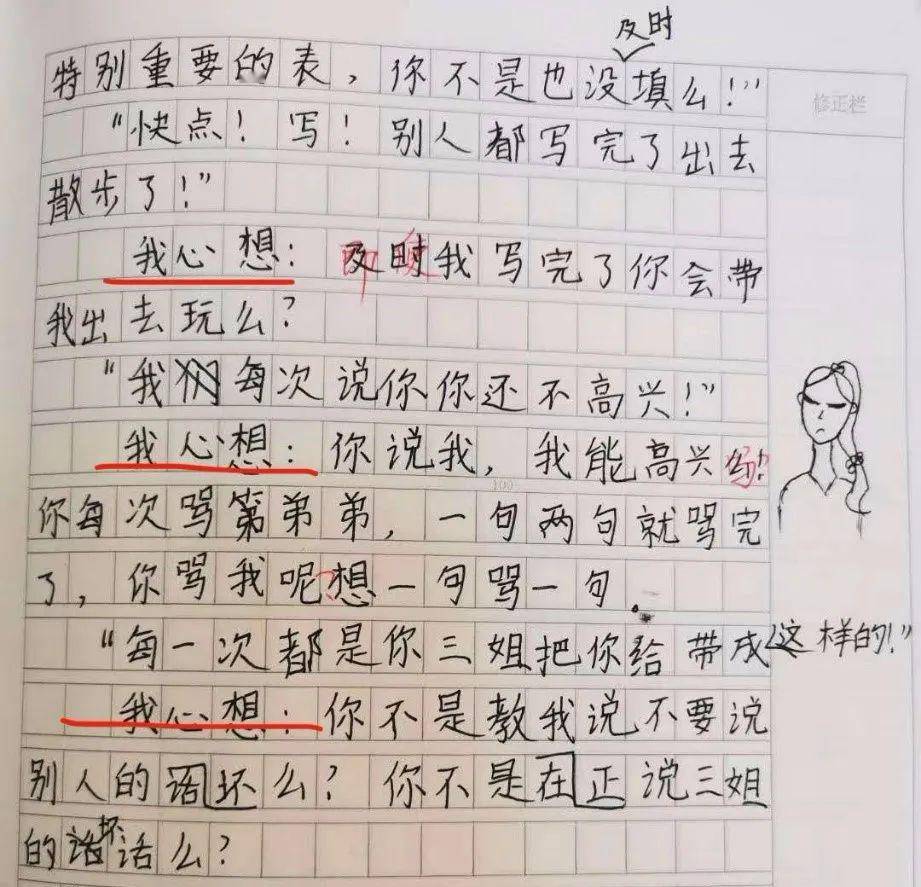 及时
特别重要的表，你不是也没填么！”
修正栏
“快点！写！别人都写完了出去
散步了！”
我心想：及时我写完了你会带
我出去玩么？
“我每次说你你还不高兴！”
我心想：你说我，我能高兴吗？
100
你每次骂第弟弟，一句两句就骂完
了，你骂我呢？想一句骂一句。
“每一次都是你三姐把你给带成这样的！”
我心想：你不是教我说不要说
别人的话坏么？你不是在正说三姐
的话坏话么？